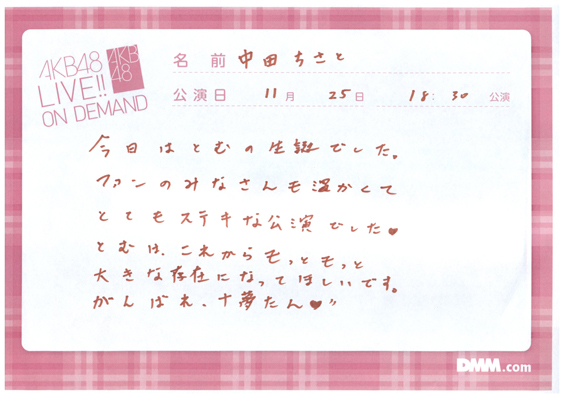 AKB48
LIVE!!
ON DEMAND
AKB
48
名 前 中田ちさと
公演日 11月 25日 18:30 公演
今日はとむの生誕でした。
ファンのみなさんも温かくて
とてもステキな公演でした♥
とむは、これからもっともっと
大きな存在になってほしいです。
がんばれ、十夢たん♥〃
DMM.com